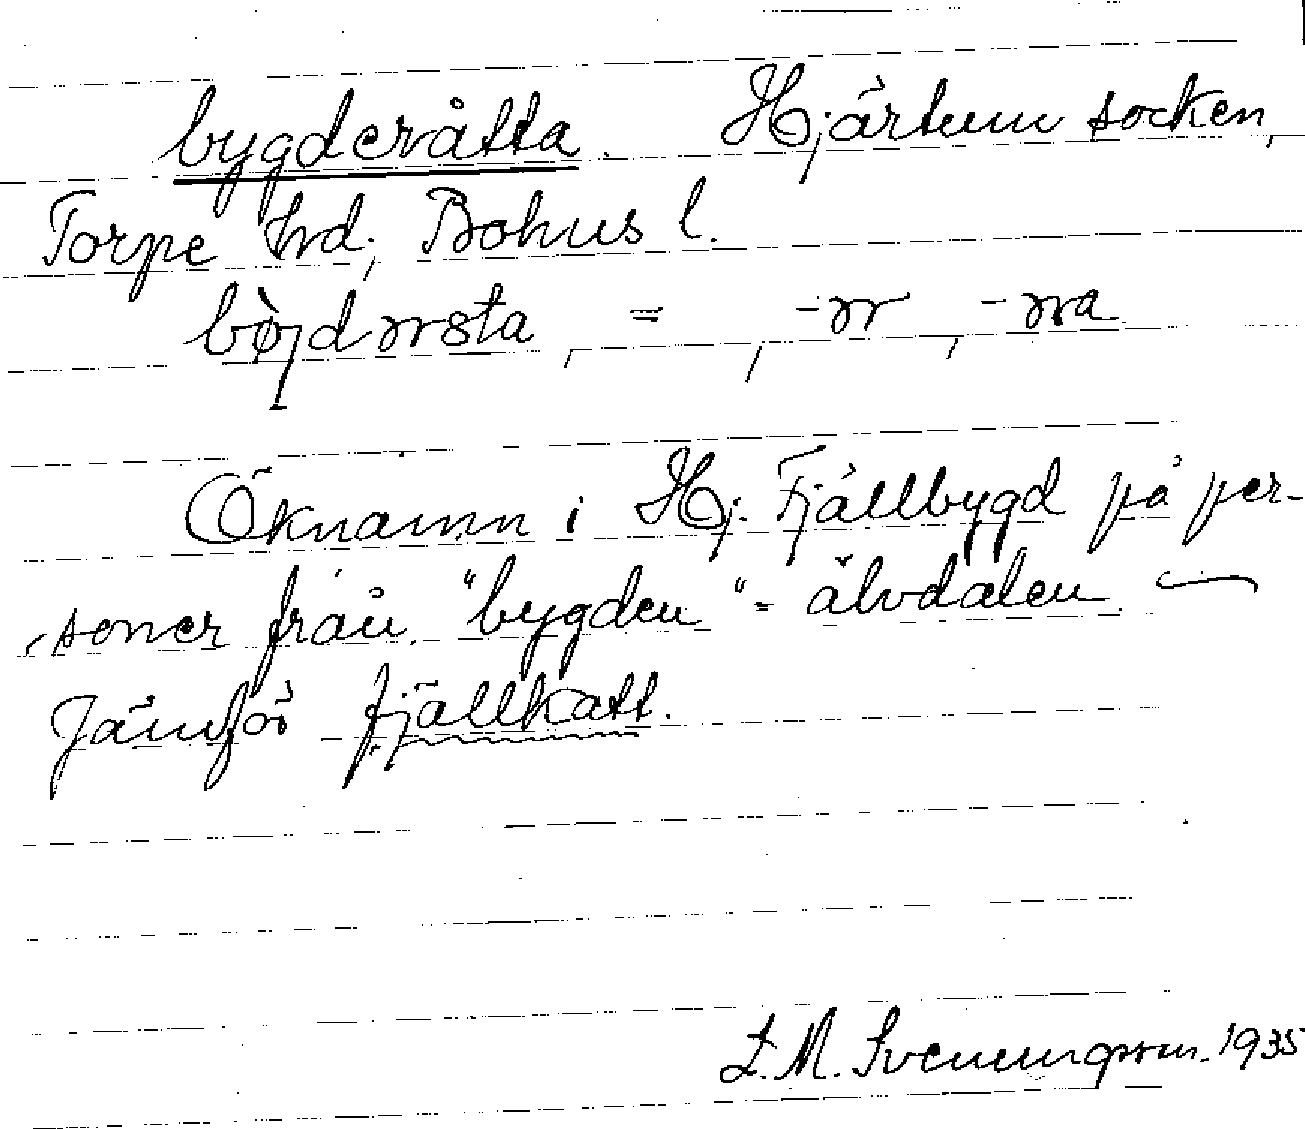 bygderåtta. Hjärtum socken,
Torpe hrd, Bohus l.
bøjdərsta, =, -ər, -əra
Öknamn i Hj. Fjällbygd på per-
soner från "bygden" = älvdalen —
Jämför fjällkatt.
L.M. Svenungsson. 1935